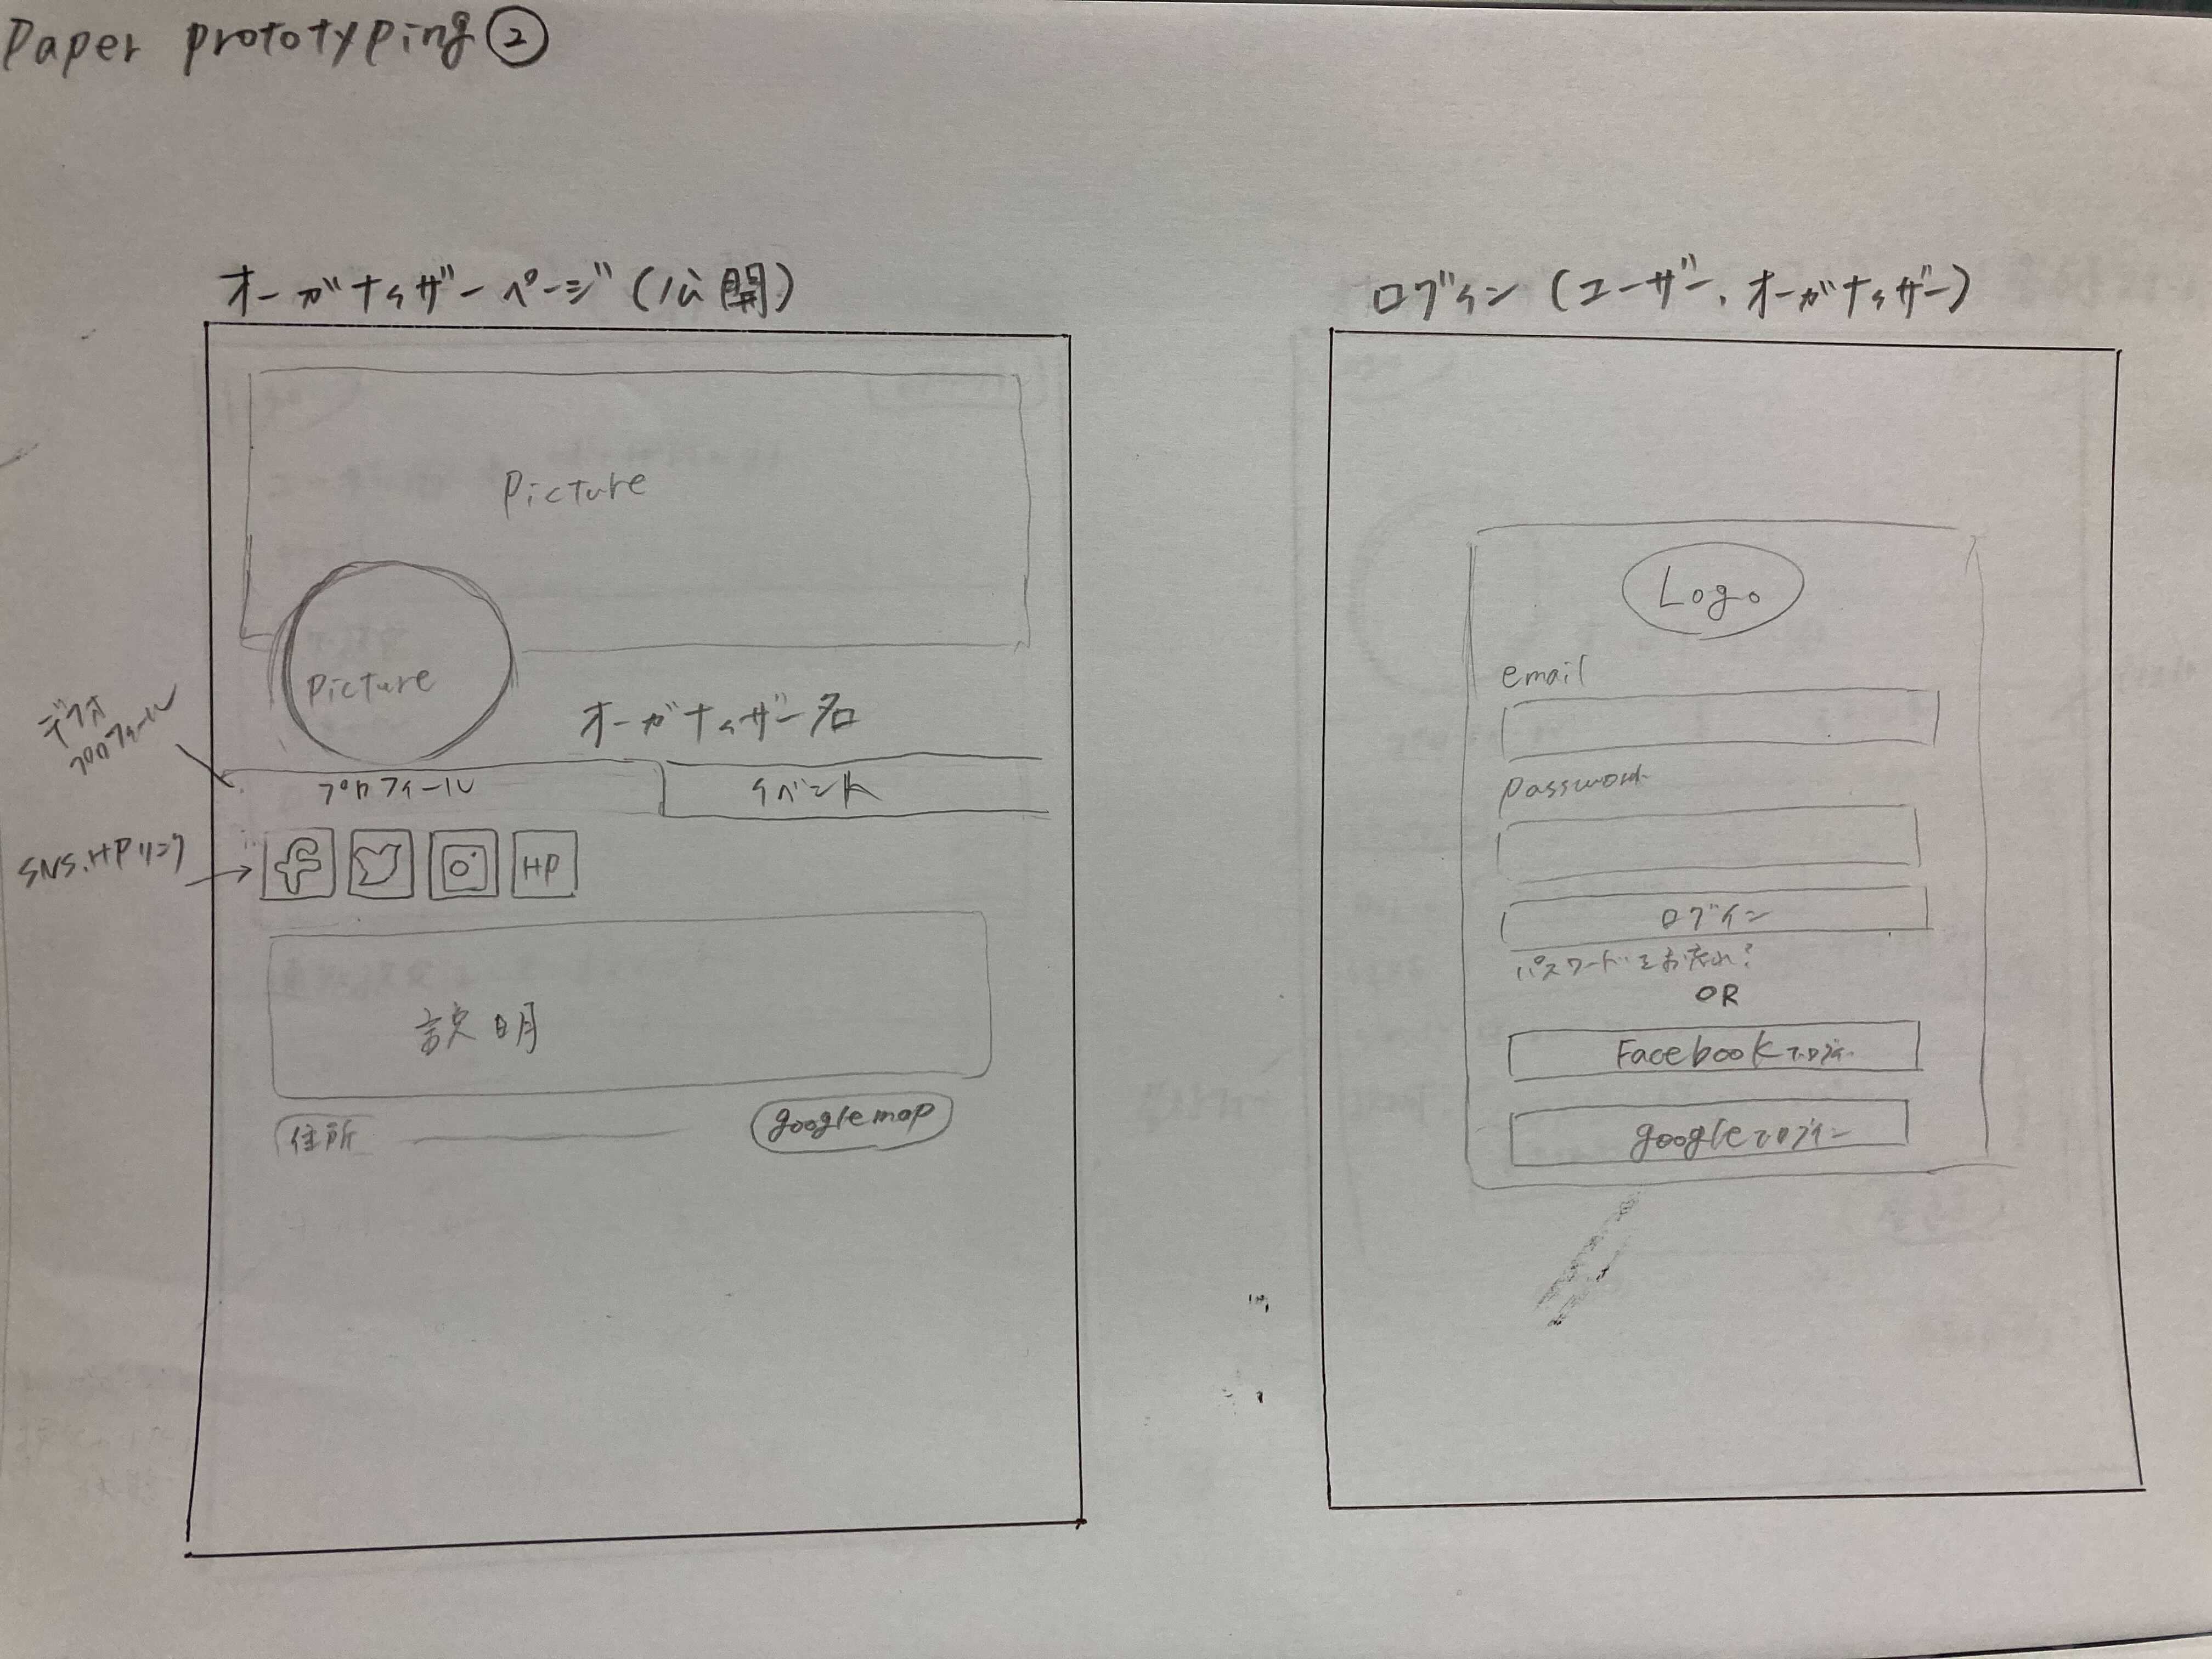 Paper prototyping②
オーガナイザーページ(公開)
Picture
Picture
オーガナイザー名
デフォ
プロフィール
プロフィール
イベント
SNS、HPリンク
HP
説明
住所
google map
ログイン(ユーザー、オーガナイザー)
Logo
email
password
ログイン
パスワードをお忘れ?
OR
Facebookでログイン
googleでログイン